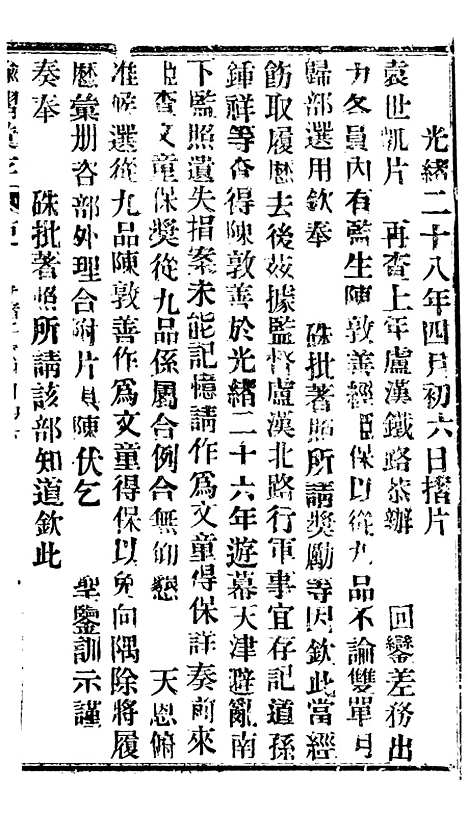 光緒二十八年四月初六日摺片
袁世凱片 再查上年盧漢鐵路恭辦 回鑾差務出
力各員內有監生陳敦善經臣保以從九品不論雙單月
歸部選用欽奉 硃批著照所請獎勵等因欽此當經
飭取履歷去後茲據監督盧漢北路行車事宜存記道孫
鍾祥等查得陳敦善於光緒二十六年遊幕天津避亂南
下監照遺失捐案未能記憶請作為文童得保詳奏前來
臣查文童保獎從九品係屬合例合無仰懇 天恩俯
准候選從九品陳敦善作為文童得保以免向隅除將履
歷彙册咨部外理合附片具陳伏乞 聖鑒訓示謹
奏奉 硃批著照所請該部知道欽此